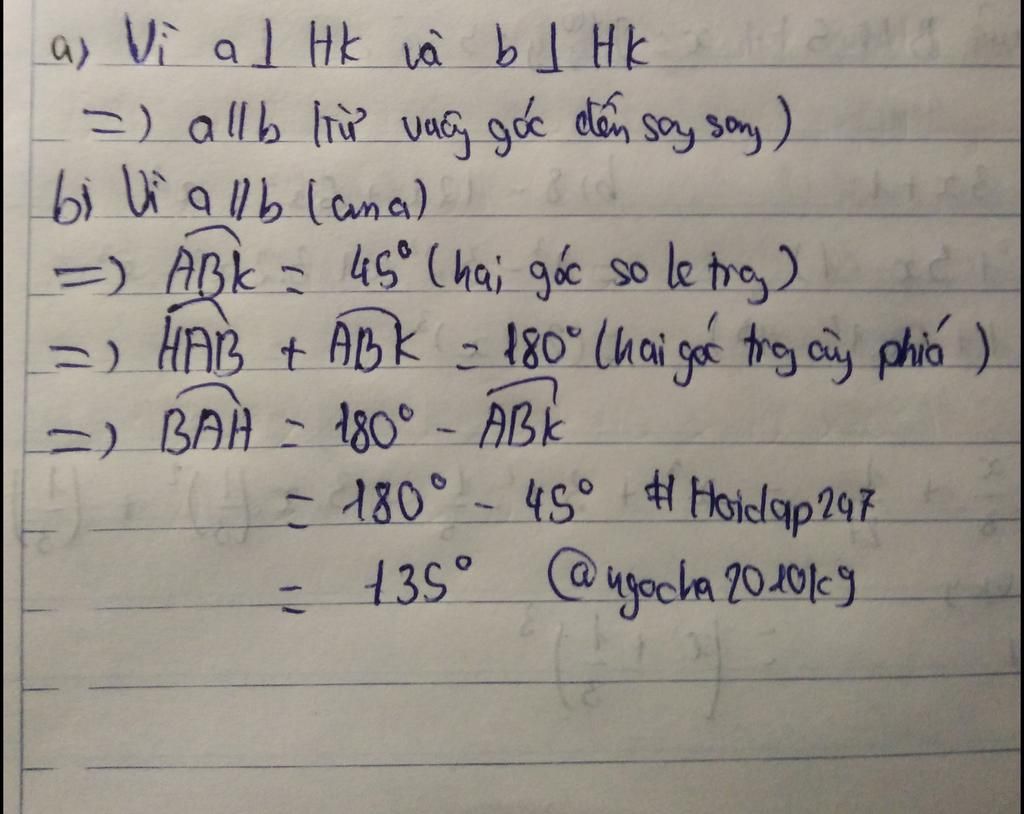 a) Vì a ⊥ HK và b ⊥ HK
=) a//b (từ vuôg góc đến sog sog)
b) Vì a//b (cm a)
=) ABK = 45° (hai góc so le trg)
=) HAB + ABK = 180° (hai góc trg cùg phía)
=) BAH = 180° - ABK
= 180° - 45° #Hoidap247
= 135° @ngocha2010kg